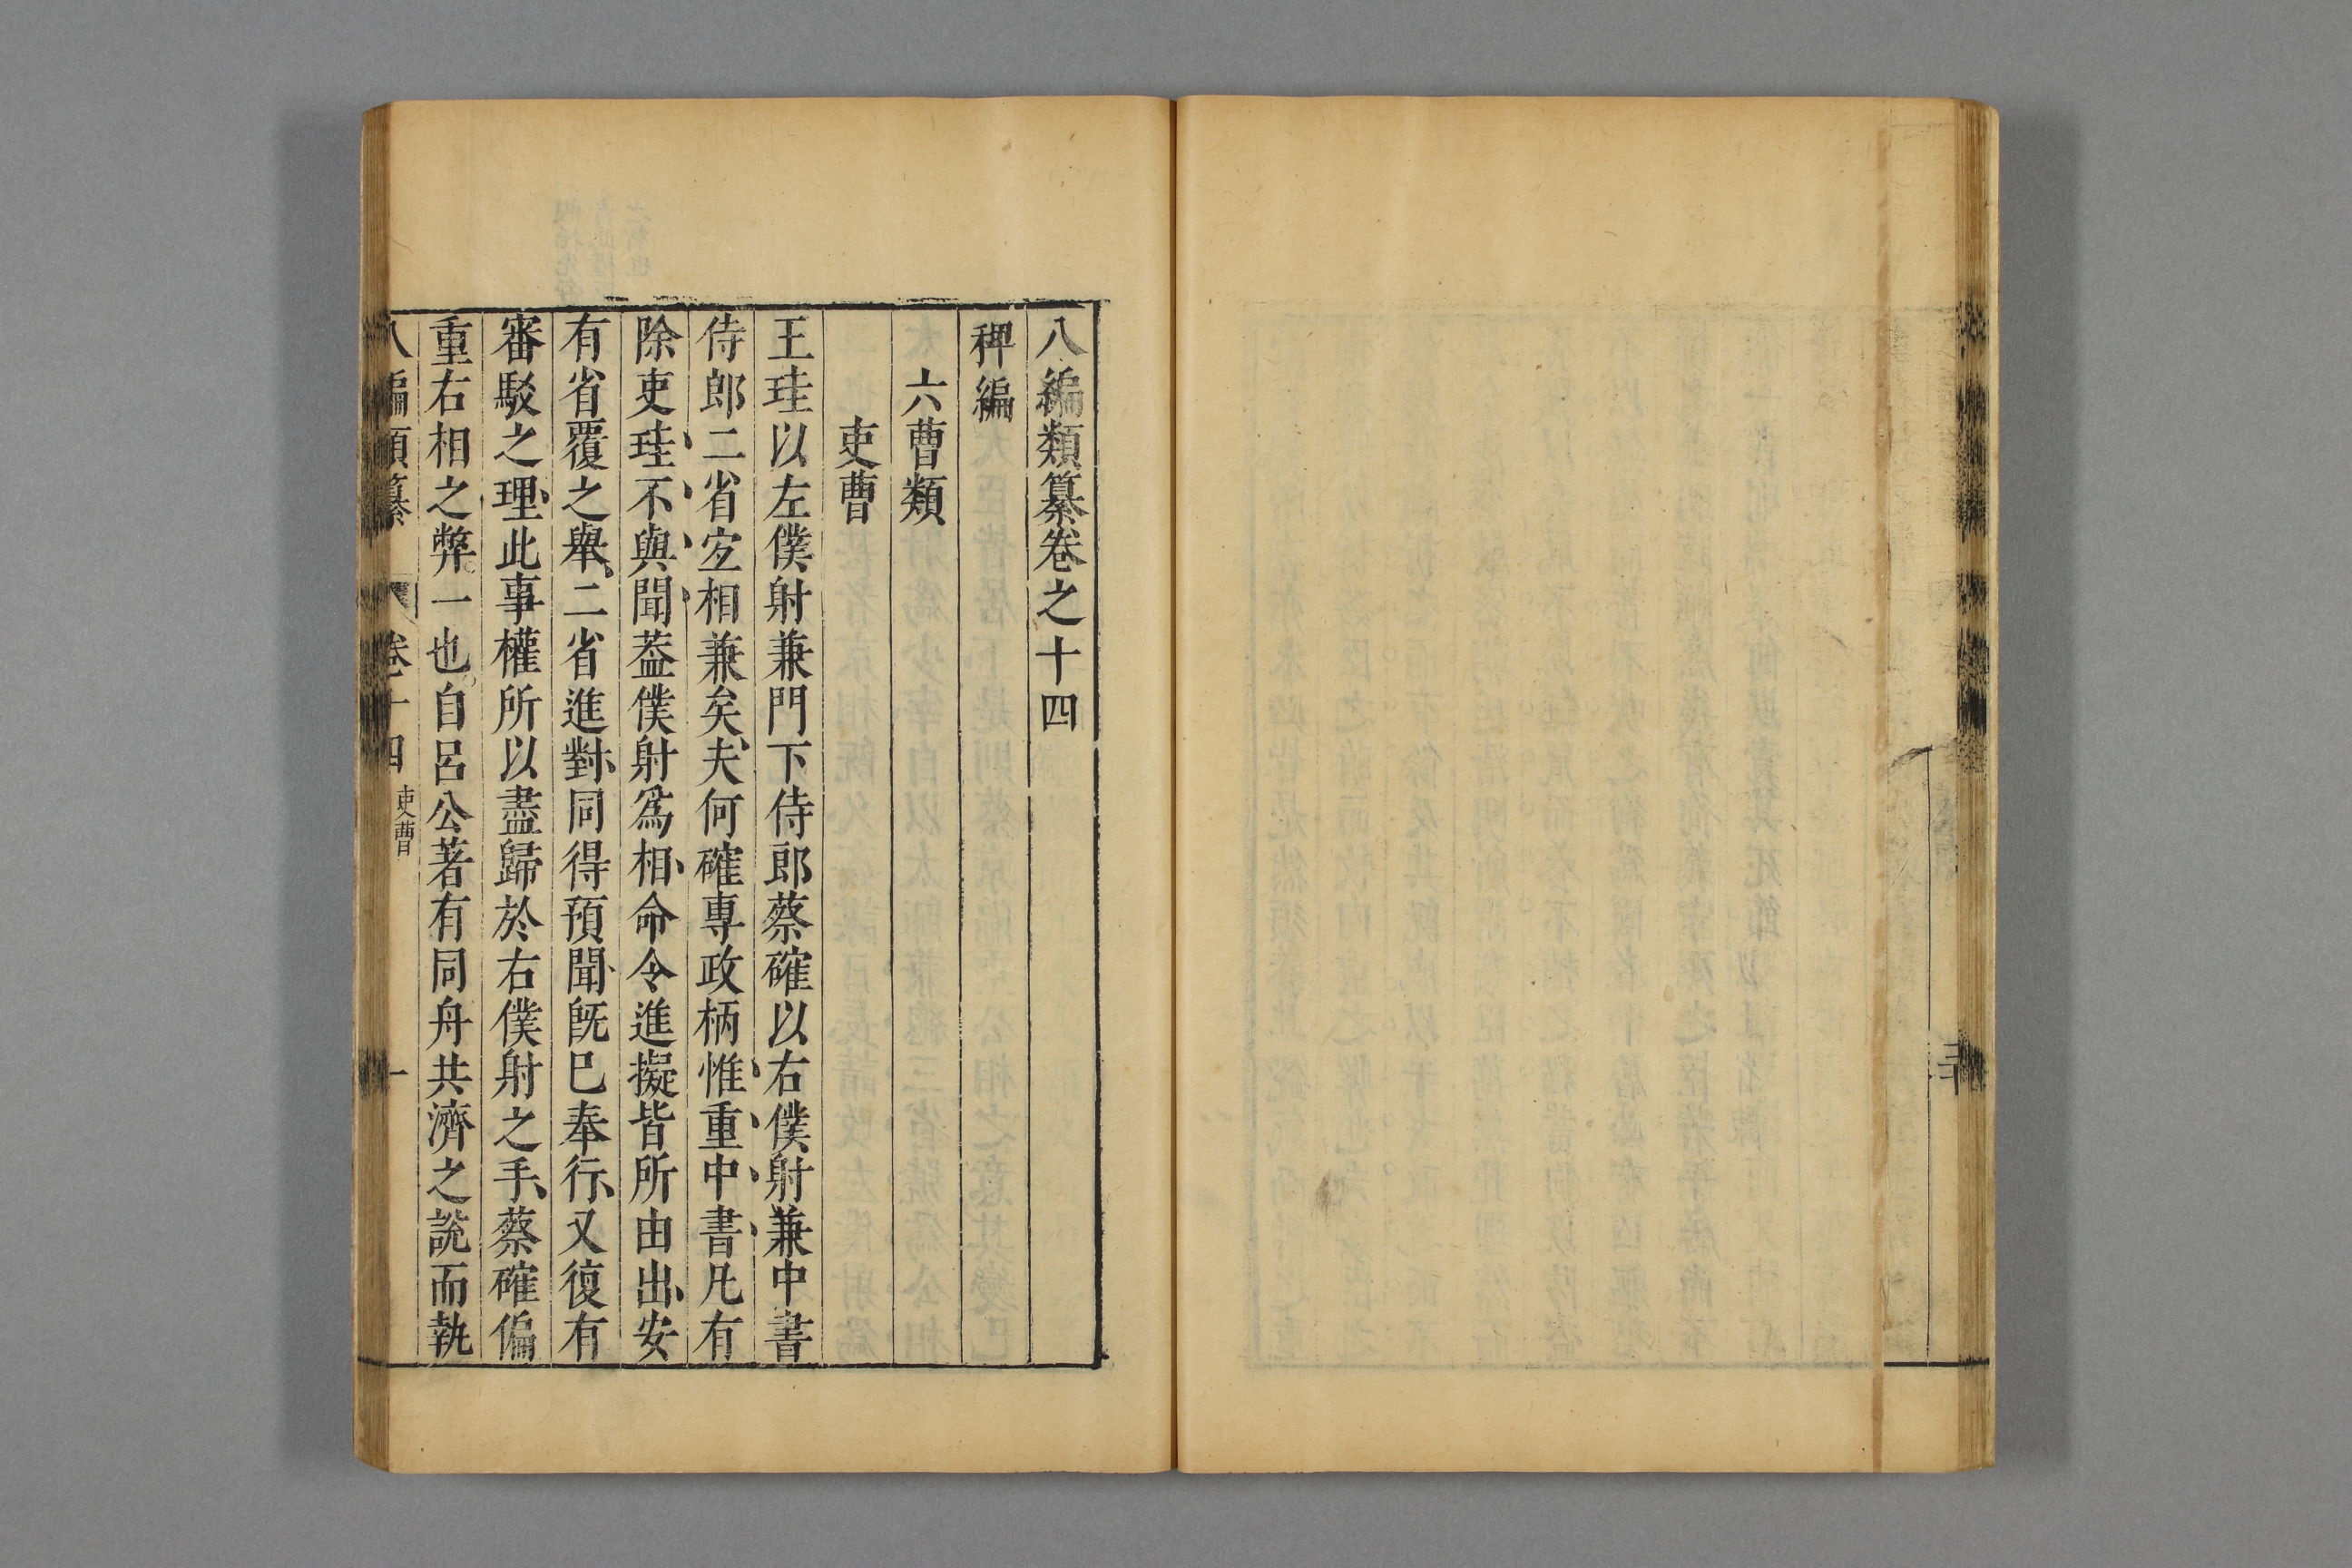 八編類纂卷之十四
稗編
六曹類
吏曹
王珪以左僕射兼門下侍郎蔡確以右僕射兼中書
侍郎二省宰相兼矣夫何確專政柄惟重中書凡有
除吏珪不與聞葢僕射爲相命令進擬皆所由出安
有省覆之舉二省進對同得預聞旣已奉行又復有
審駁之理此事權所以盡歸於右僕射之手蔡確偏
重右相之弊一也自呂公著有同舟共濟之說而執
八編類纂 卷十四 吏曹 一